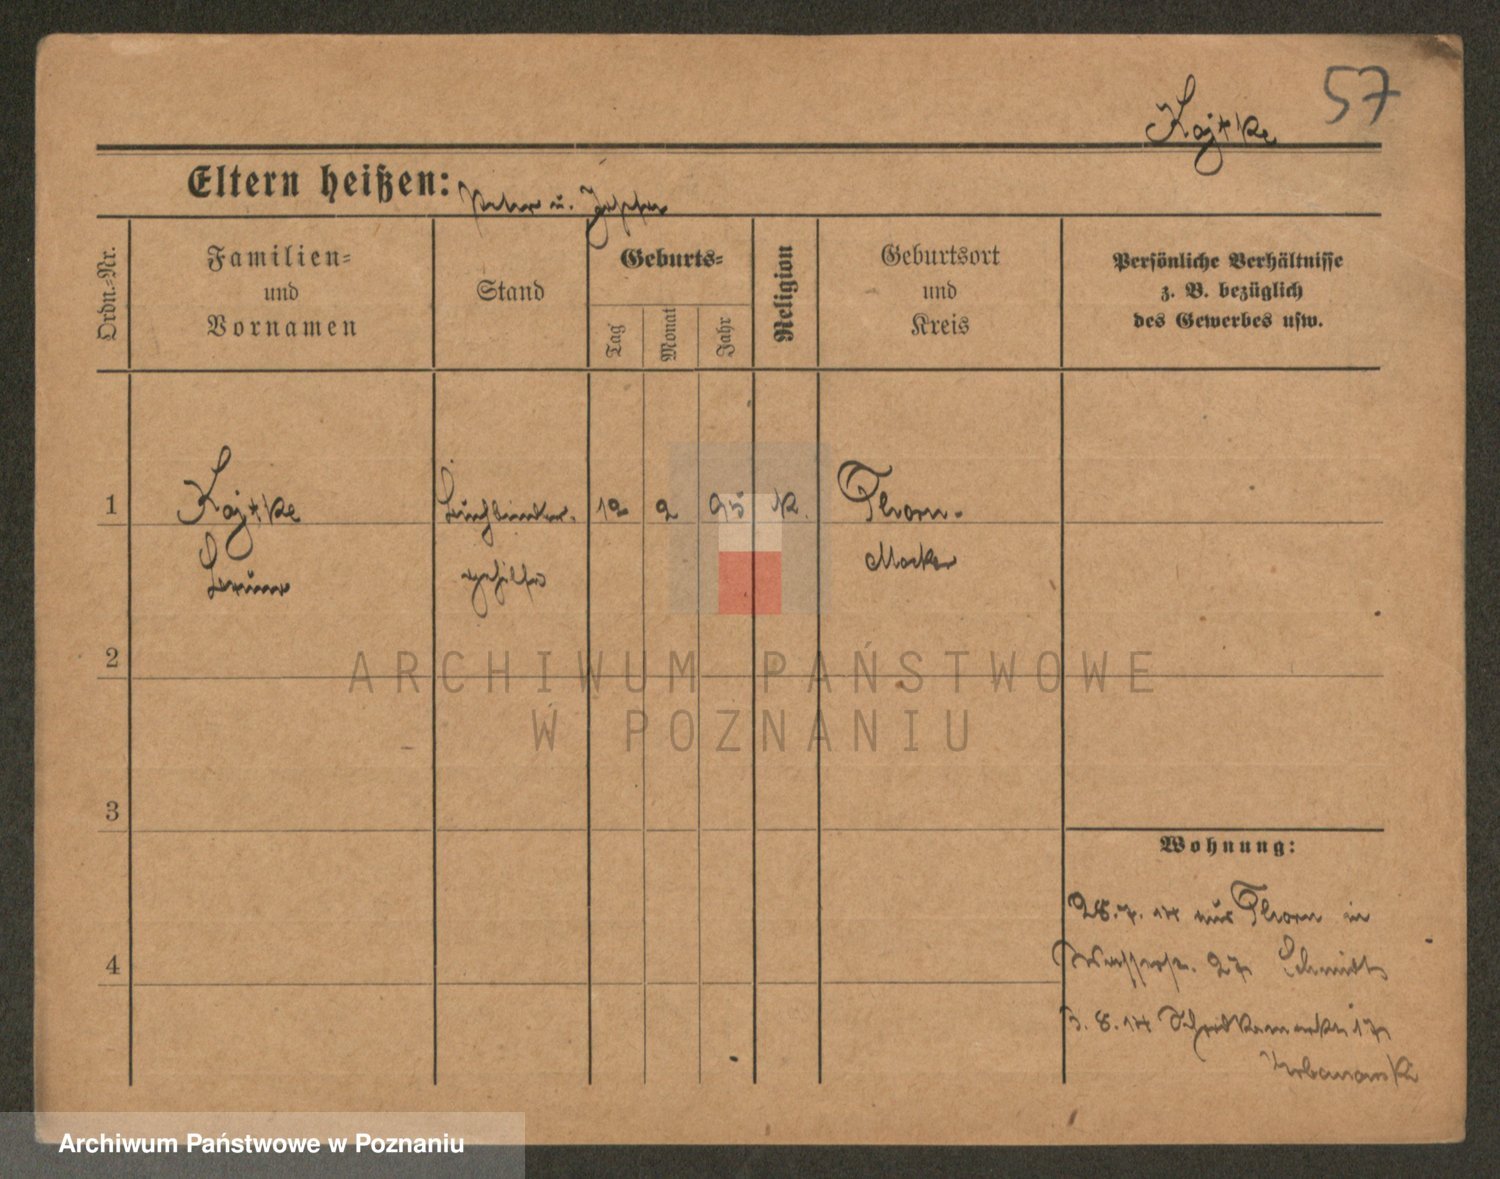 57
Kajtke
Eltern heißen: Peter u.
Ordn.-Nr.
Familien=
und
Vornamen
Stand
Geburts=
Tag
Monat
Jahr
Religion
Geburtsort
und
Kreis
Persönliche Verhältnisse
z. B. bezüglich
des Gewerbes usw.
1 Kajtke Buchbinder- 12 2 95 K. Thorn-
Bruno gehilfe Mocker
2
ARCHIWUM PAŃSTWOWE
W POZNANIU
3
Wohnung:
28.7.14 aus Thorn in
27 Schmidt
4
3.8.14 17
Urbanowski
Archiwum Państwowe w Poznaniu